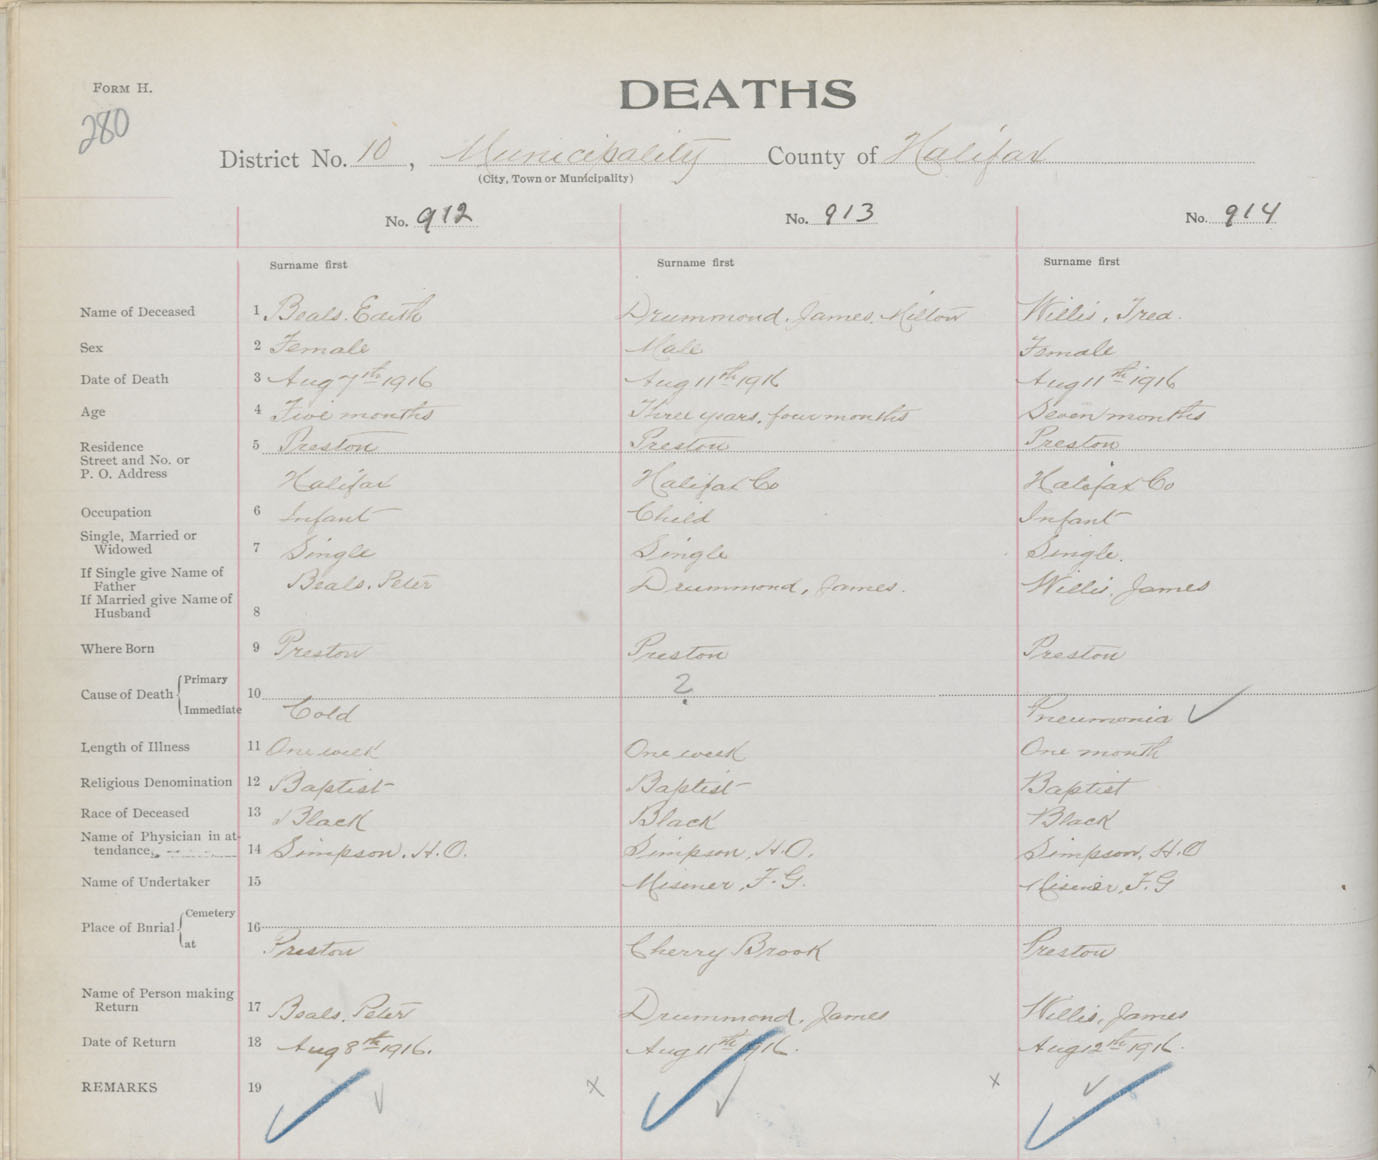 FORM H.
DEATHS
280
District No. 10, Municipality County of Halifax
(City, Town or Municipality)
No. 912 No. 913 No. 914
Surname first Surname first Surname first
Name of Deceased 1 Beals. Edith Drummond. James. Milton Willis, Fred.
Sex 2 Female Male Female
Date of Death 3 Aug 7th 1916 Aug 11th 1916 Aug 11th 1916
Age 4 Five months Three years. four months Seven months
Residence 5 Preston Preston Preston
Street and No. or
P. O. Address
Halifax Halifax Co Halifax Co
Occupation 6 Infant Child Infant
Single, Married or
Widowed 7 Single Single Single.
If Single give Name of
Father Beals. Peter Drummond, James. Willis. James
If Married give Name of
Husband 8
Where Born 9 Preston Preston Preston
Cause of Death Primary 10 ?
Immediate Cold Pneumonia ✓
Length of Illness 11 One week One week One month
Religious Denomination 12 Baptist Baptist Baptist
Race of Deceased 13 Black Black Black
Name of Physician in at-
tendance, 14 Simpson. H. O. Simpson, H. O. Simpson, H. O
Name of Undertaker 15 Misener, F. G. Misener, F. G
Place of Burial Cemetery 16
at Preston Cherry Brook Preston
Name of Person making
Return 17 Beals. Peter Drummond, James Willis, James
Date of Return 18 Aug 8th 1916. Aug 11th 1916. Aug 12th 1916.
REMARKS 19 ✓ ✓ x ✓ ✓ x ✓ ✓ x